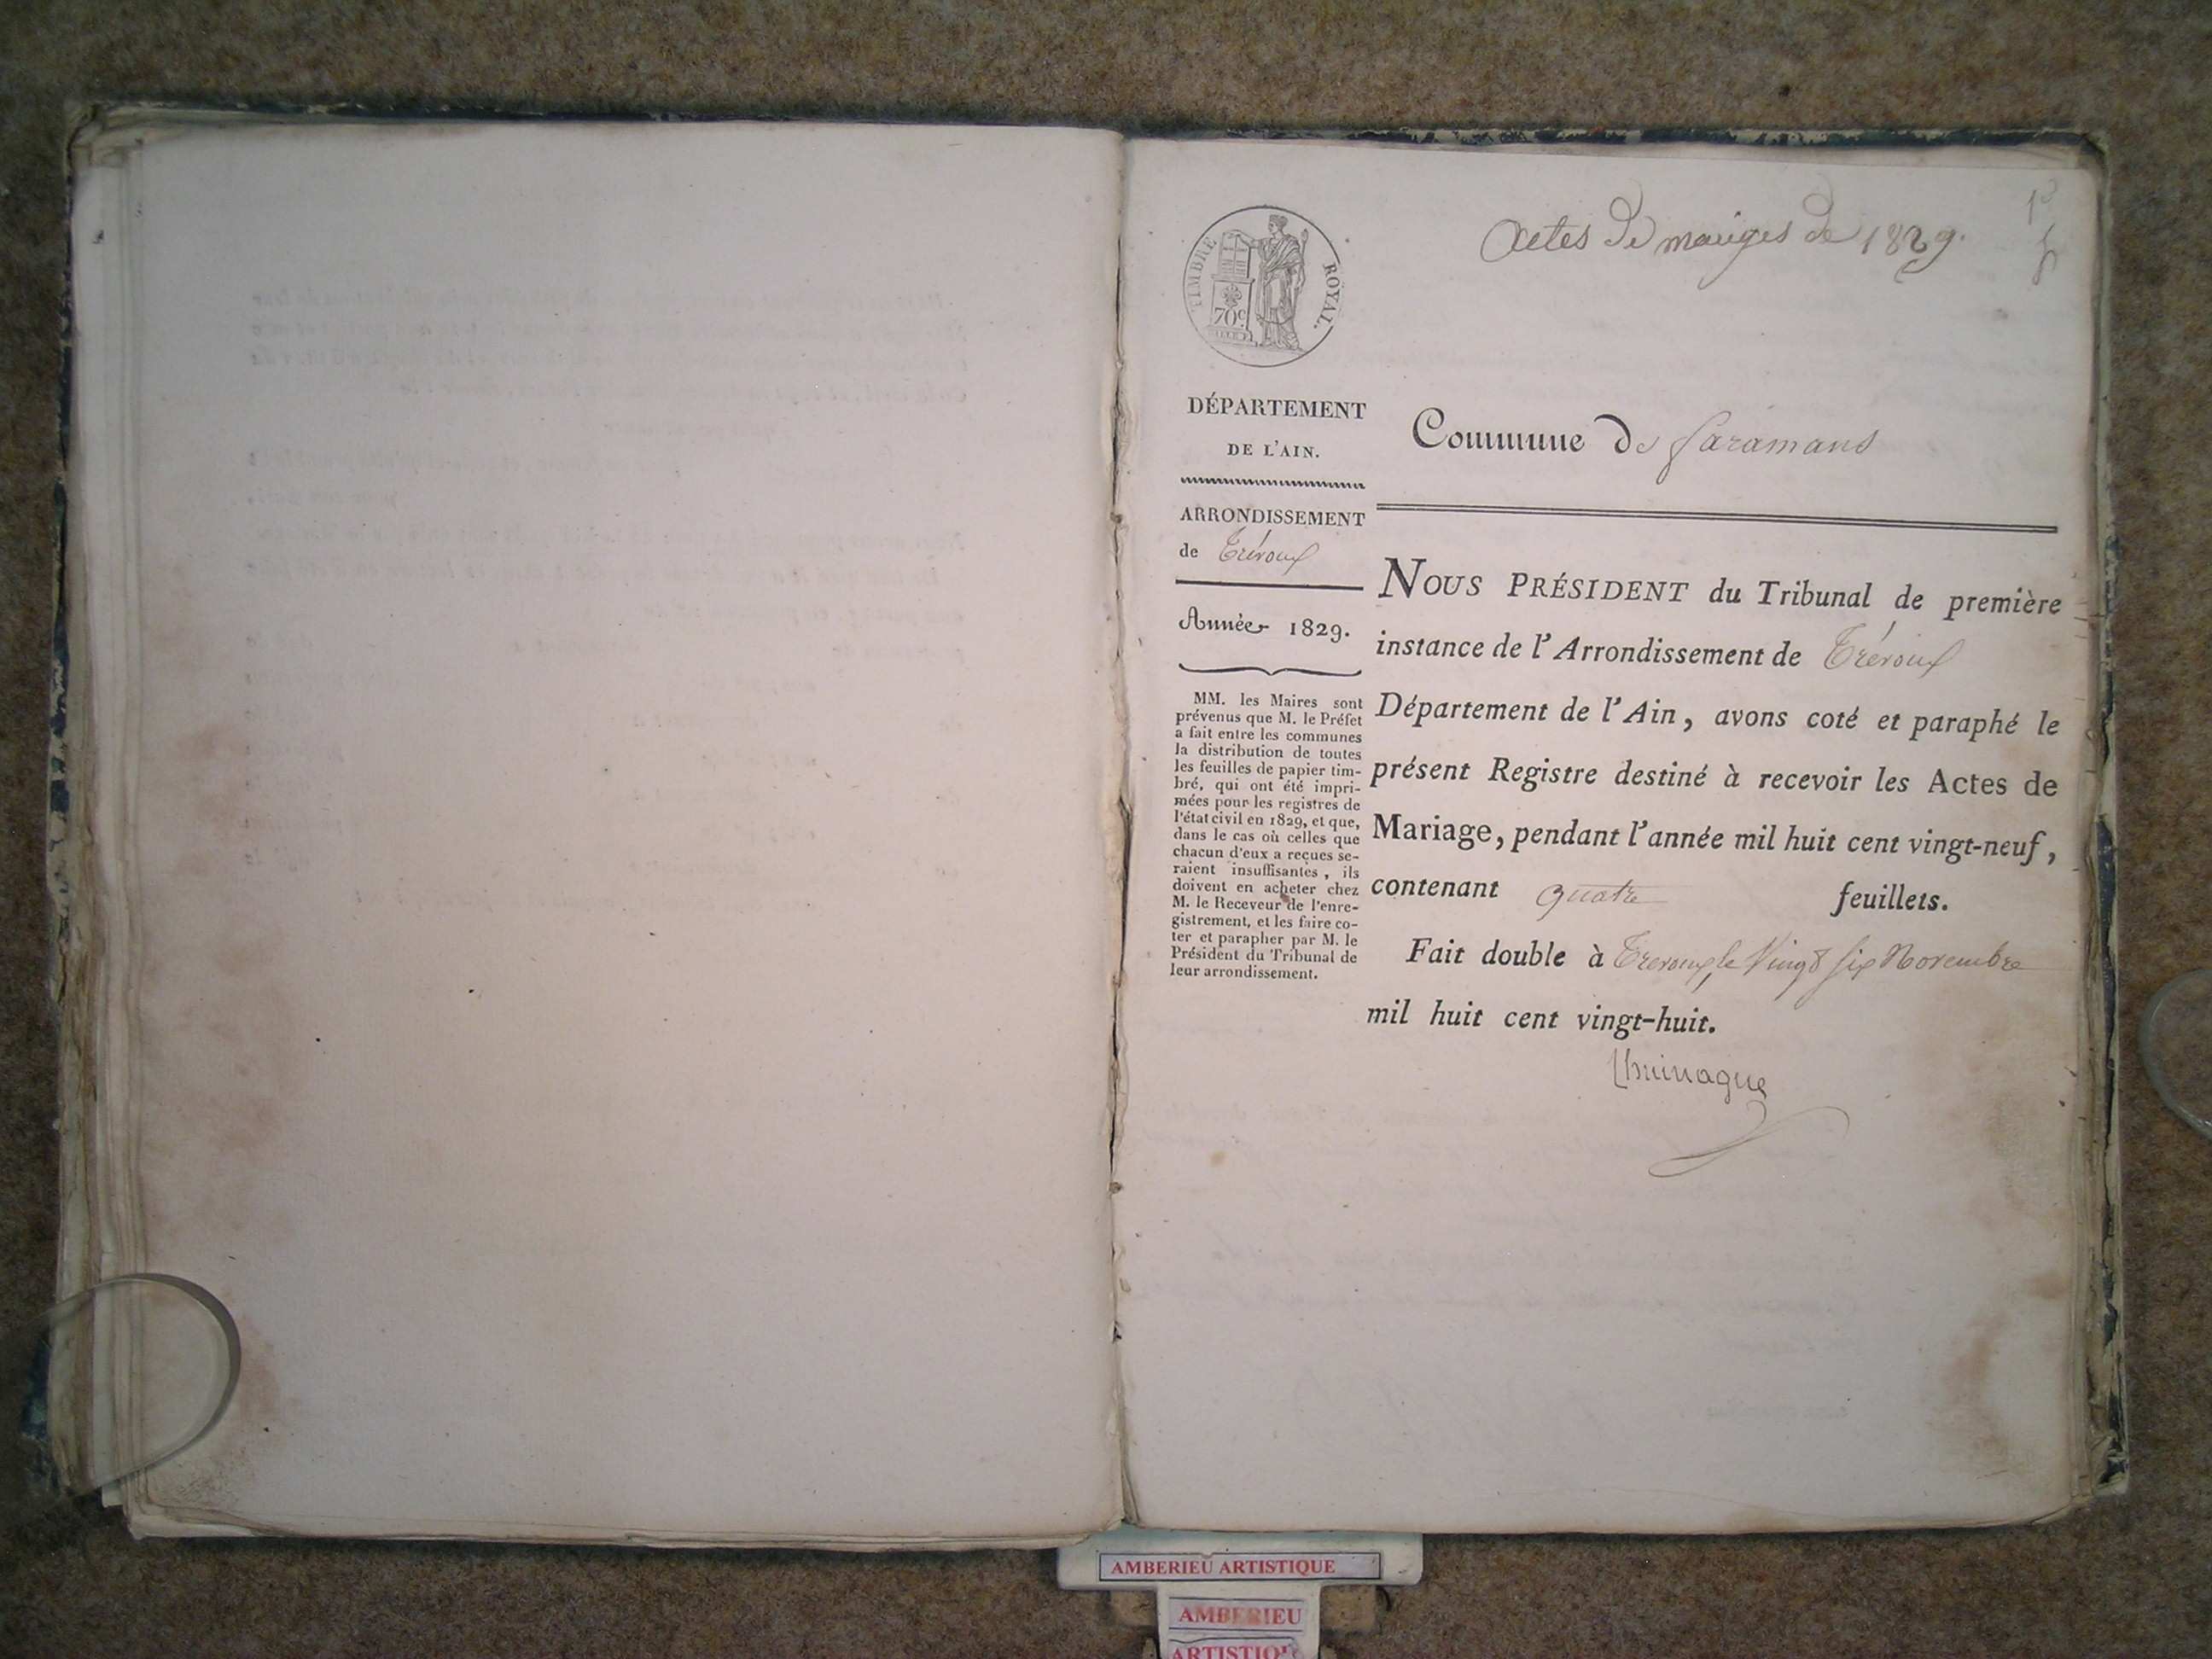 Actes De mariges de 1829.
1er
TIMBRE ROYAL.
70c
DÉPARTEMENT
DE L'AIN.
ARRONDISSEMENT
de Trévoux
Année 1829.
MM. les Maires sont
prévenus que M. le Préfet
a fait entre les communes
la distribution de toutes
les feuilles de papier tim-
bré, qui ont été impri-
mées pour les registres de
l'état civil en 1829, et que,
dans le cas où celles que
chacun d'eux a reçues se-
raient insuffisantes, ils
doivent en acheter chez
M. le Receveur de l'enre-
gistrement, et les faire co-
ter et parapher par M. le
Président du Tribunal de
leur arrondissement.
Commune De faramans
NOUS PRÉSIDENT du Tribunal de première
instance de l'Arrondissement de Trévoux
Département de l'Ain, avons coté et paraphé le
présent Registre destiné à recevoir les Actes de
Mariage, pendant l'année mil huit cent vingt-neuf,
contenant quatre feuillets.
Fait double à Trevoux, le Vingt six Novembre
mil huit cent vingt-huit.
AMBERIEU ARTISTIQUE
AMBERIEU